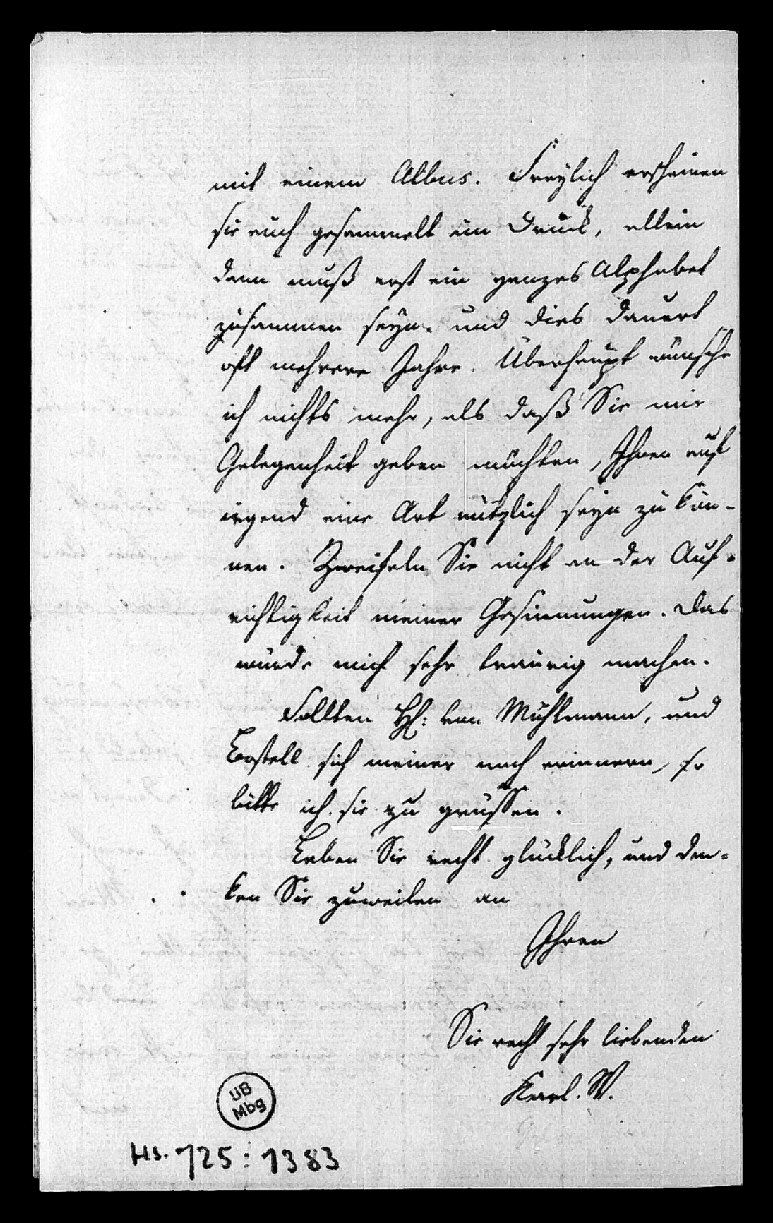 mit einem Albus. Freylich erscheinen
sie auch gesammelt im Druck, allein
dann muß erst ein ganzes Alphabet
zusammen seyn, und dies dauert
oft mehrere Jahre. Überhaupt wünsche
ich nichts mehr, als daß Sie mir
Gelegenheit geben möchten, Ihnen auf
irgend eine Art nützlich seyn zu kön-
nen. Zweifeln Sie nicht an der Auf-
richtigkeit meiner Gesinnungen. Das
würde mich sehr traurig machen.
Sollten H: von Mühlmann, und
Bostell sich meiner noch erinnern, so
bitte ich sie zu grüssen.
Leben Sie recht glücklich, und den-
ken Sie zuweilen an
Ihren
Sie recht sehr liebenden
Karl. W.
UB
Mbg
Hs. 725:1383